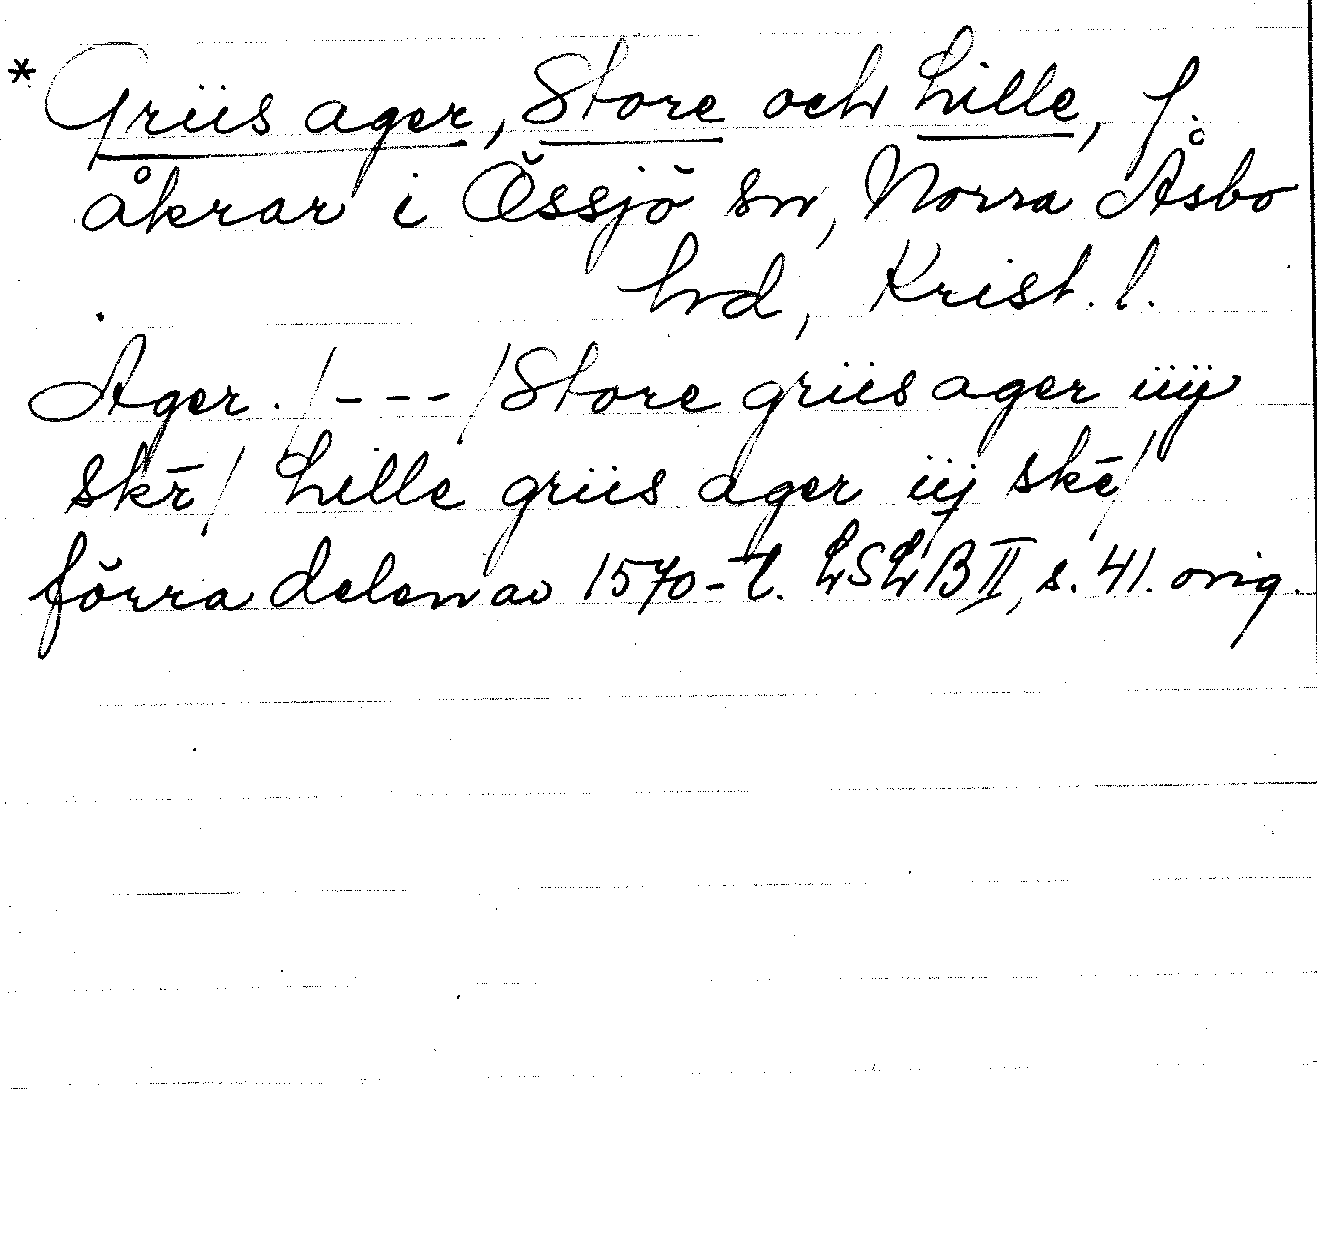 * Griis ager, Store och Lille, f.
åkrar i Össjö sn, Norra Åsbo
hd, Krist. l.
Ager. /---/ Store griis ager iiij
skr̄/ Lille griis ager iij skē/
förra delen av 1570-t. LSLB II, s. 41. orig.